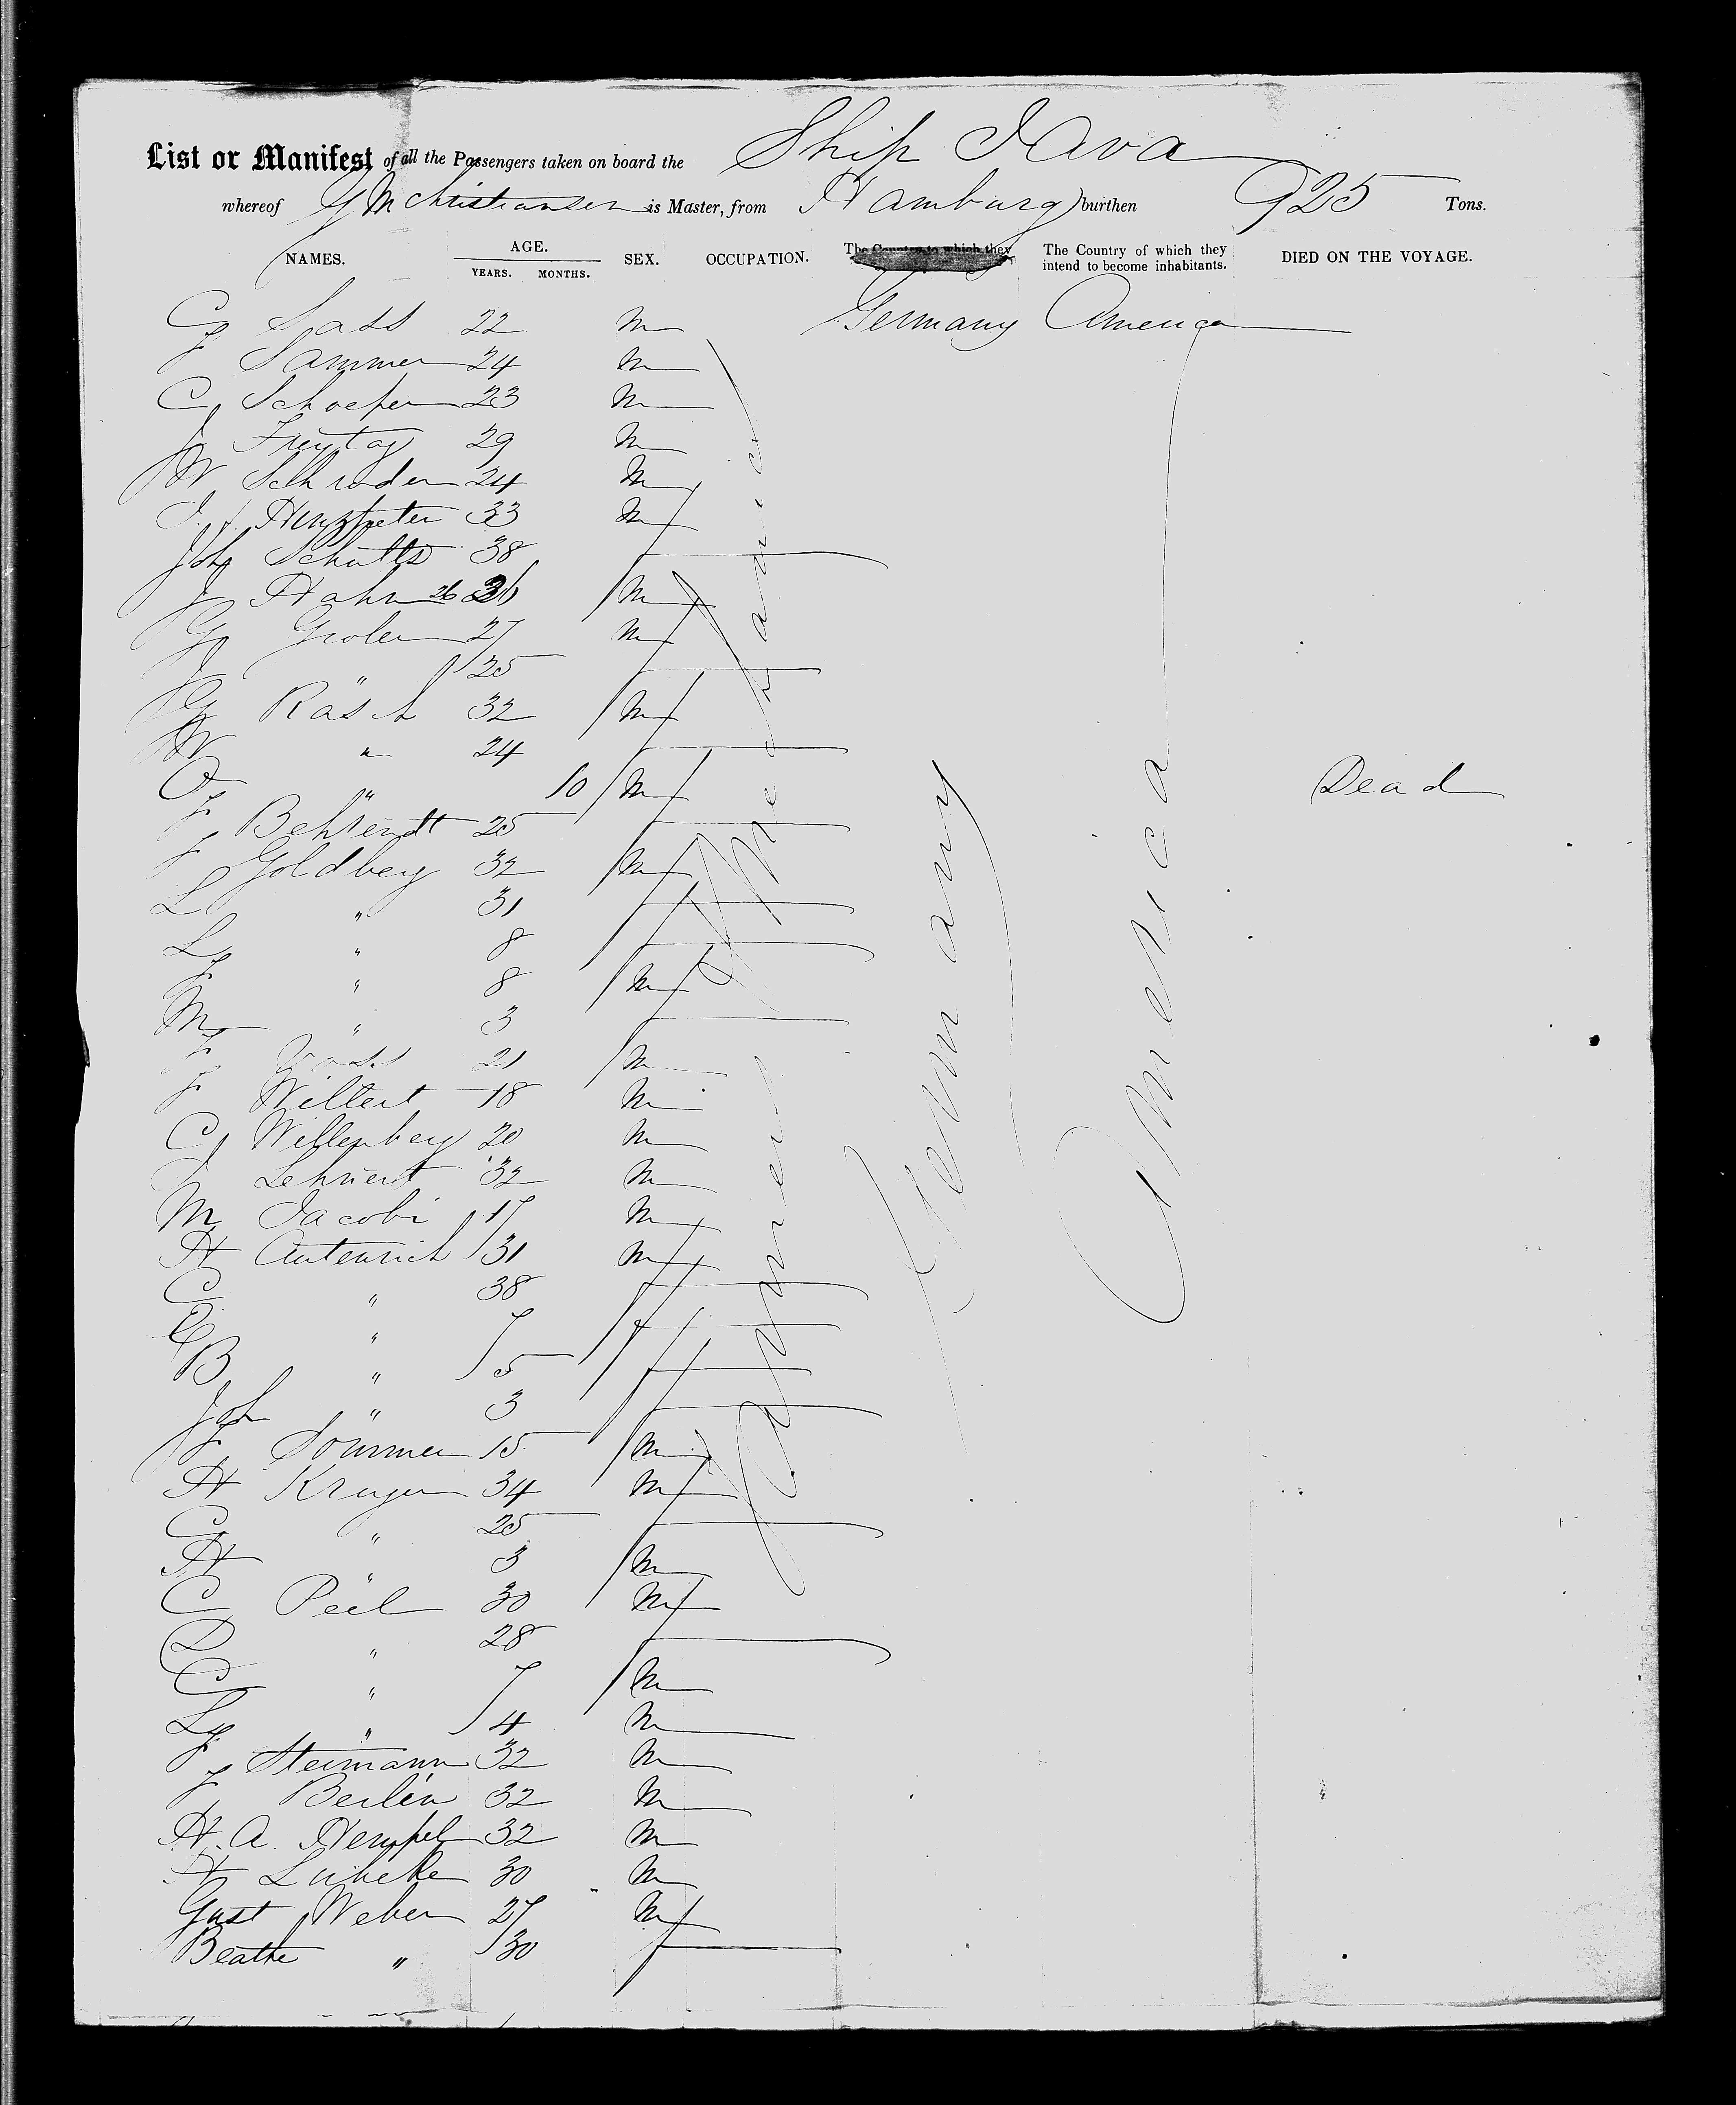 List or Manifest of all the Passengers taken on board the Ship Java
whereof G M Christiansen is Master, from Hamburg burthen 925 Tons.
NAMES. AGE. YEARS. MONTHS. SEX. OCCUPATION. The Country to which they The Country of which they intend to become inhabitants. DIED ON THE VOYAGE.
C Sass 22 m Germany America
J Sammer 24 m
C Schaefer 23 m
J Freytag 29 m
W Schroder 24 m
33 m
Joh Schultz 38 f
J Hahn 26 m
G Groler 27 m
J " 25 f
G Räsch 32 m
W " 24 f
O " 10 m Dead
F Behrendt 25 f
J Goldberg 32 m
L " 31 f
L " 8 f
F " 8 m
M " 3 f
F Voss 21 m
F Wiltert 18 m
C Willenberg 20 m
J Lehnert 32 m
M Jacobi 17 m
H Autenrich 31 m
C " 38 f
E " 7 f
B " 5 f
Joh " 3 f
F Sommer 15 m
H Kruger 34 m
C " 25 f
H " 3 m
C Peel 30 m
D " 28 f
C " 7 m
L " 4 m
F Steimann 32 m
F Berlin 32 m
H. A. Hempel 32 m
H Lubcke 30 m
Gust Weber 27 m
Beathe " 30 f
Farmer Mechanic
Germany
America